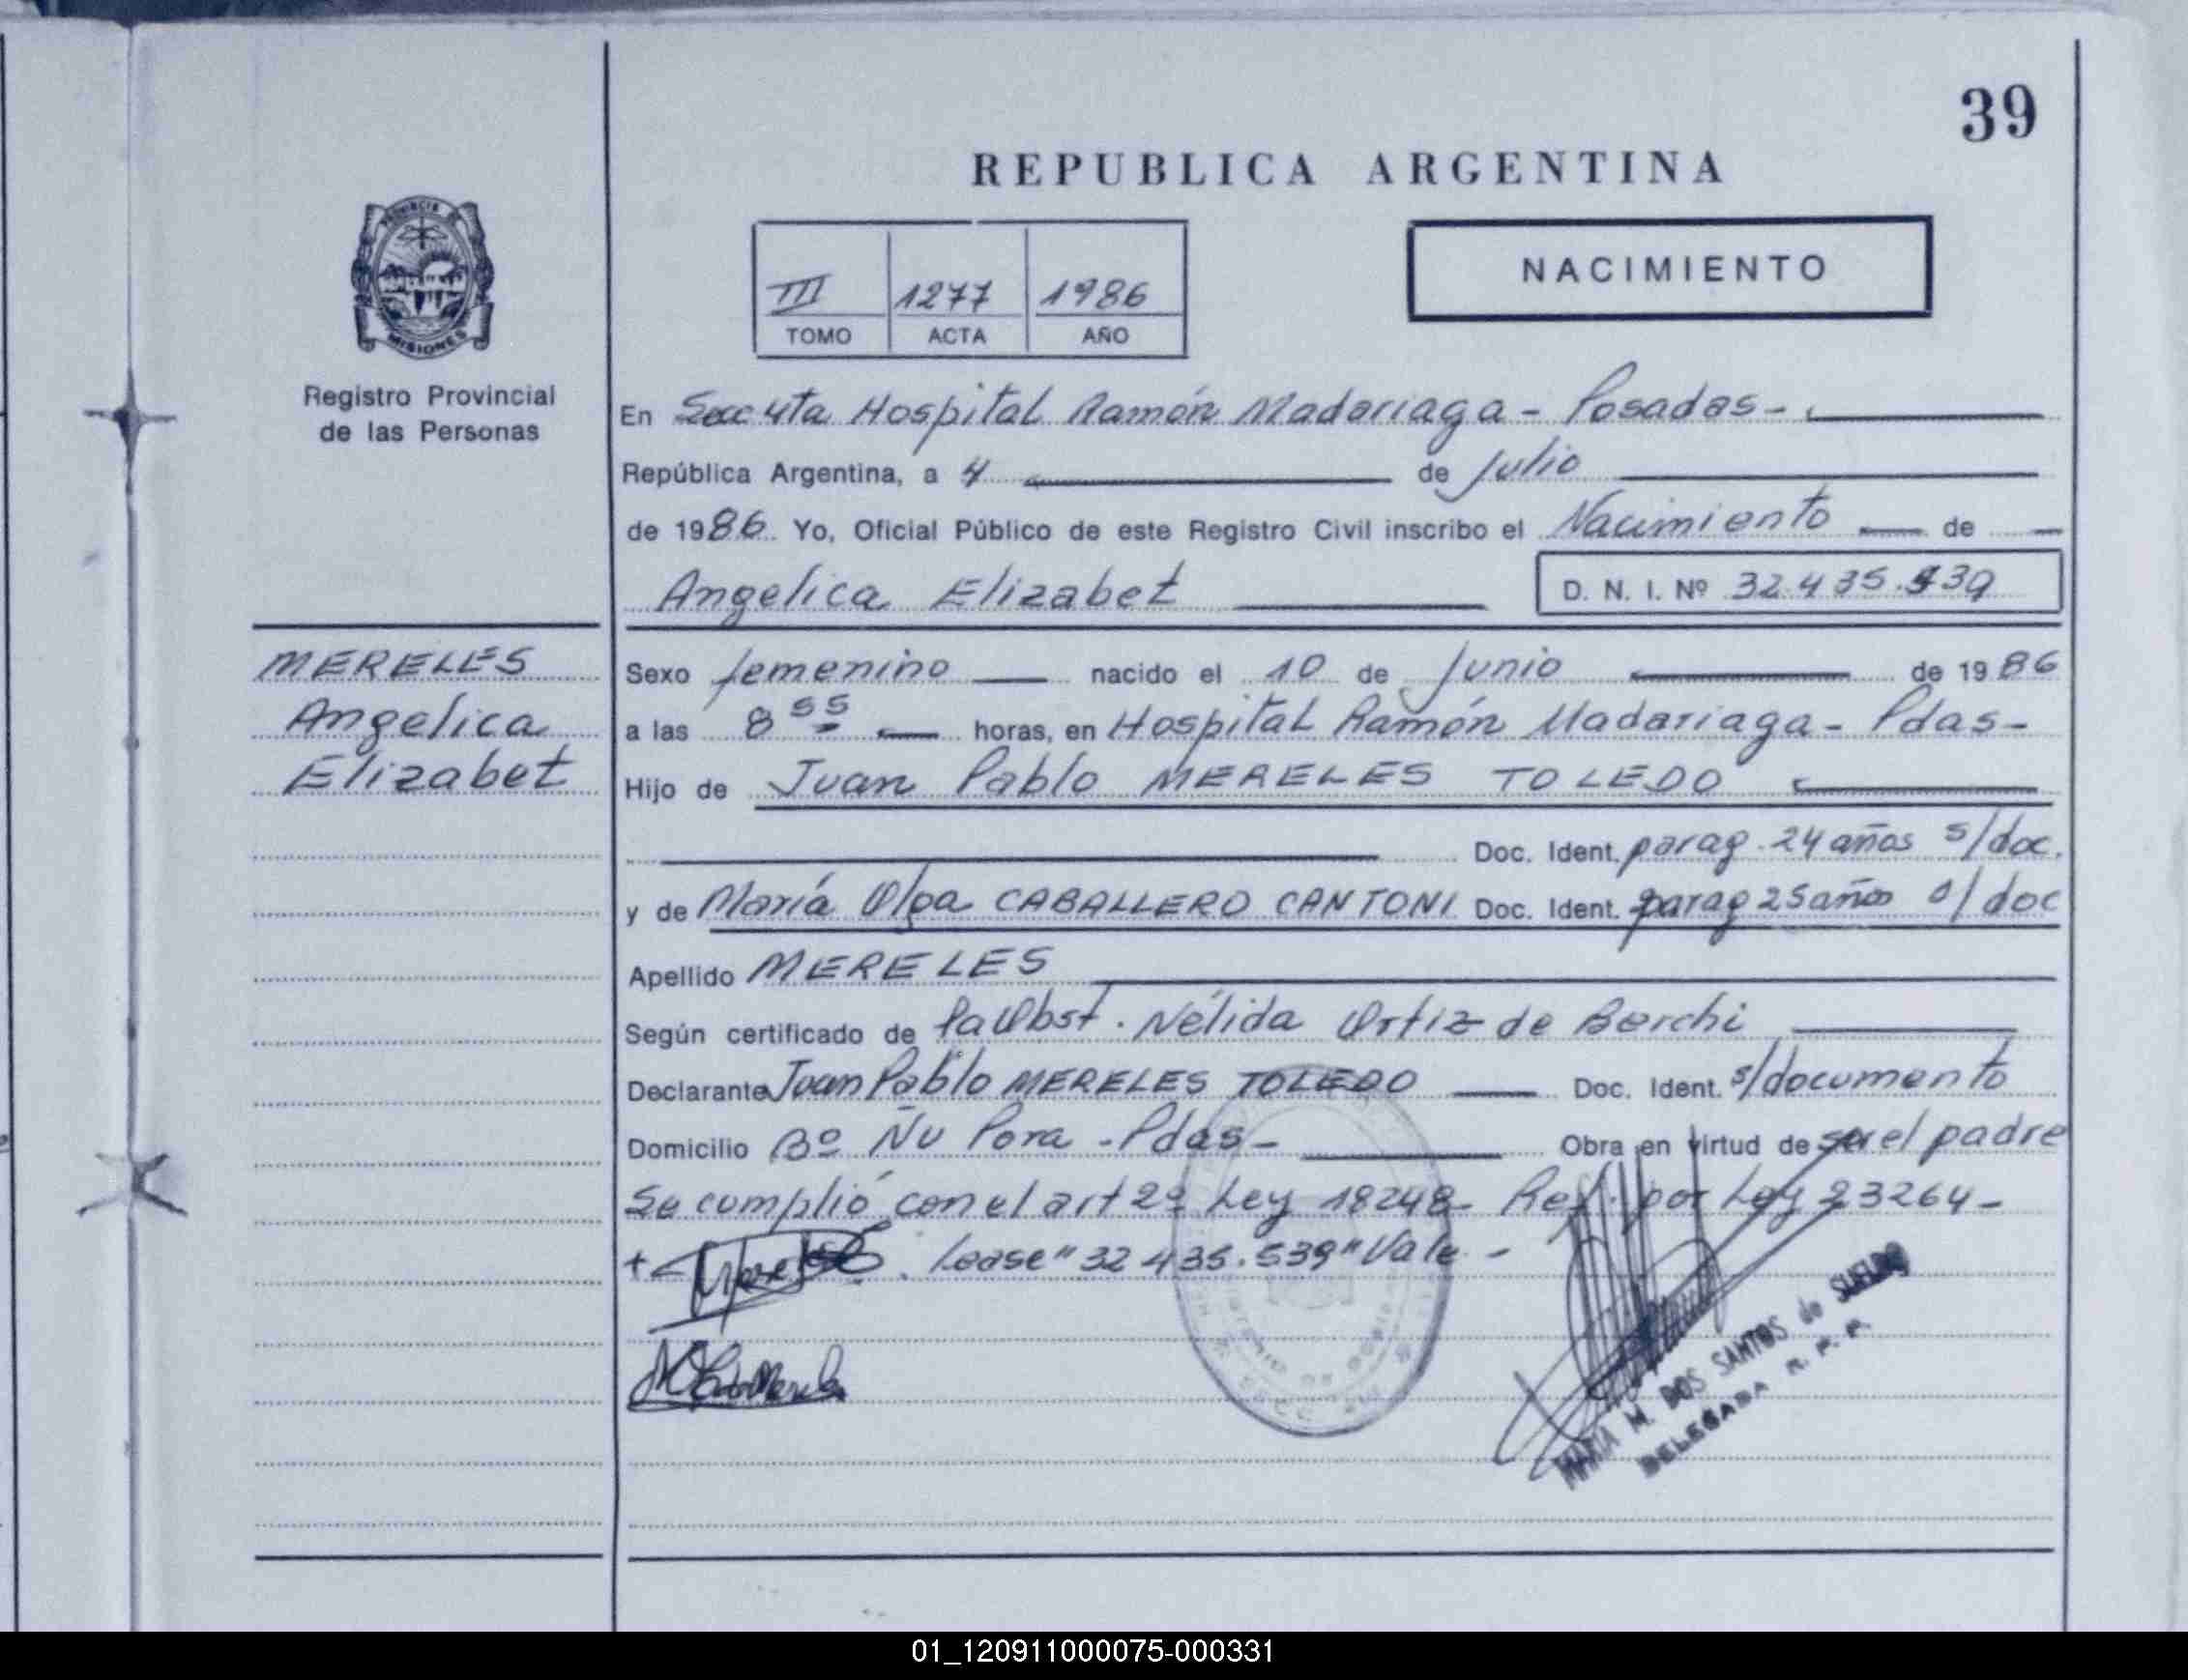 39
REPUBLICA ARGENTINA
PROVINCIA DE
MISIONES
Registro Provincial
de las Personas
III 1277 1986
TOMO ACTA AÑO
NACIMIENTO
En Secc 4ta Hospital Ramón Madariaga - Posadas -
República Argentina, a 4 de Julio
de 1986. Yo, Oficial Público de este Registro Civil inscribo el Nacimiento de
Angelica Elizabet D. N. I. Nº 32.435.539
MERELES
Angelica
Elizabet
Sexo femenino nacido el 10 de Junio de 1986
a las 8 55 horas, en Hospital Ramón Madariaga - Pdas -
Hijo de Juan Pablo MERELES TOLEDO
Doc. Ident. parag. 24 años s/doc.
y de María Olga CABALLERO CANTONI Doc. Ident. parag 25 años s/doc
Apellido MERELES
Según certificado de la Obst. Nélida Ortiz de Borchi
Declarante Juan Pablo MERELES TOLEDO Doc. Ident. s/documento
Domicilio Bº Ñu Pora - Pdas - Obra en virtud de ser el padre
Se cumplió con el art 2º Ley 18248 - Ref. por Ley 23264 -
Lease "32.435.539" Vale -
MARIA M. DOS SANTOS de SUELDO
DELEGADA R. P. P.
01_120911000075-000331